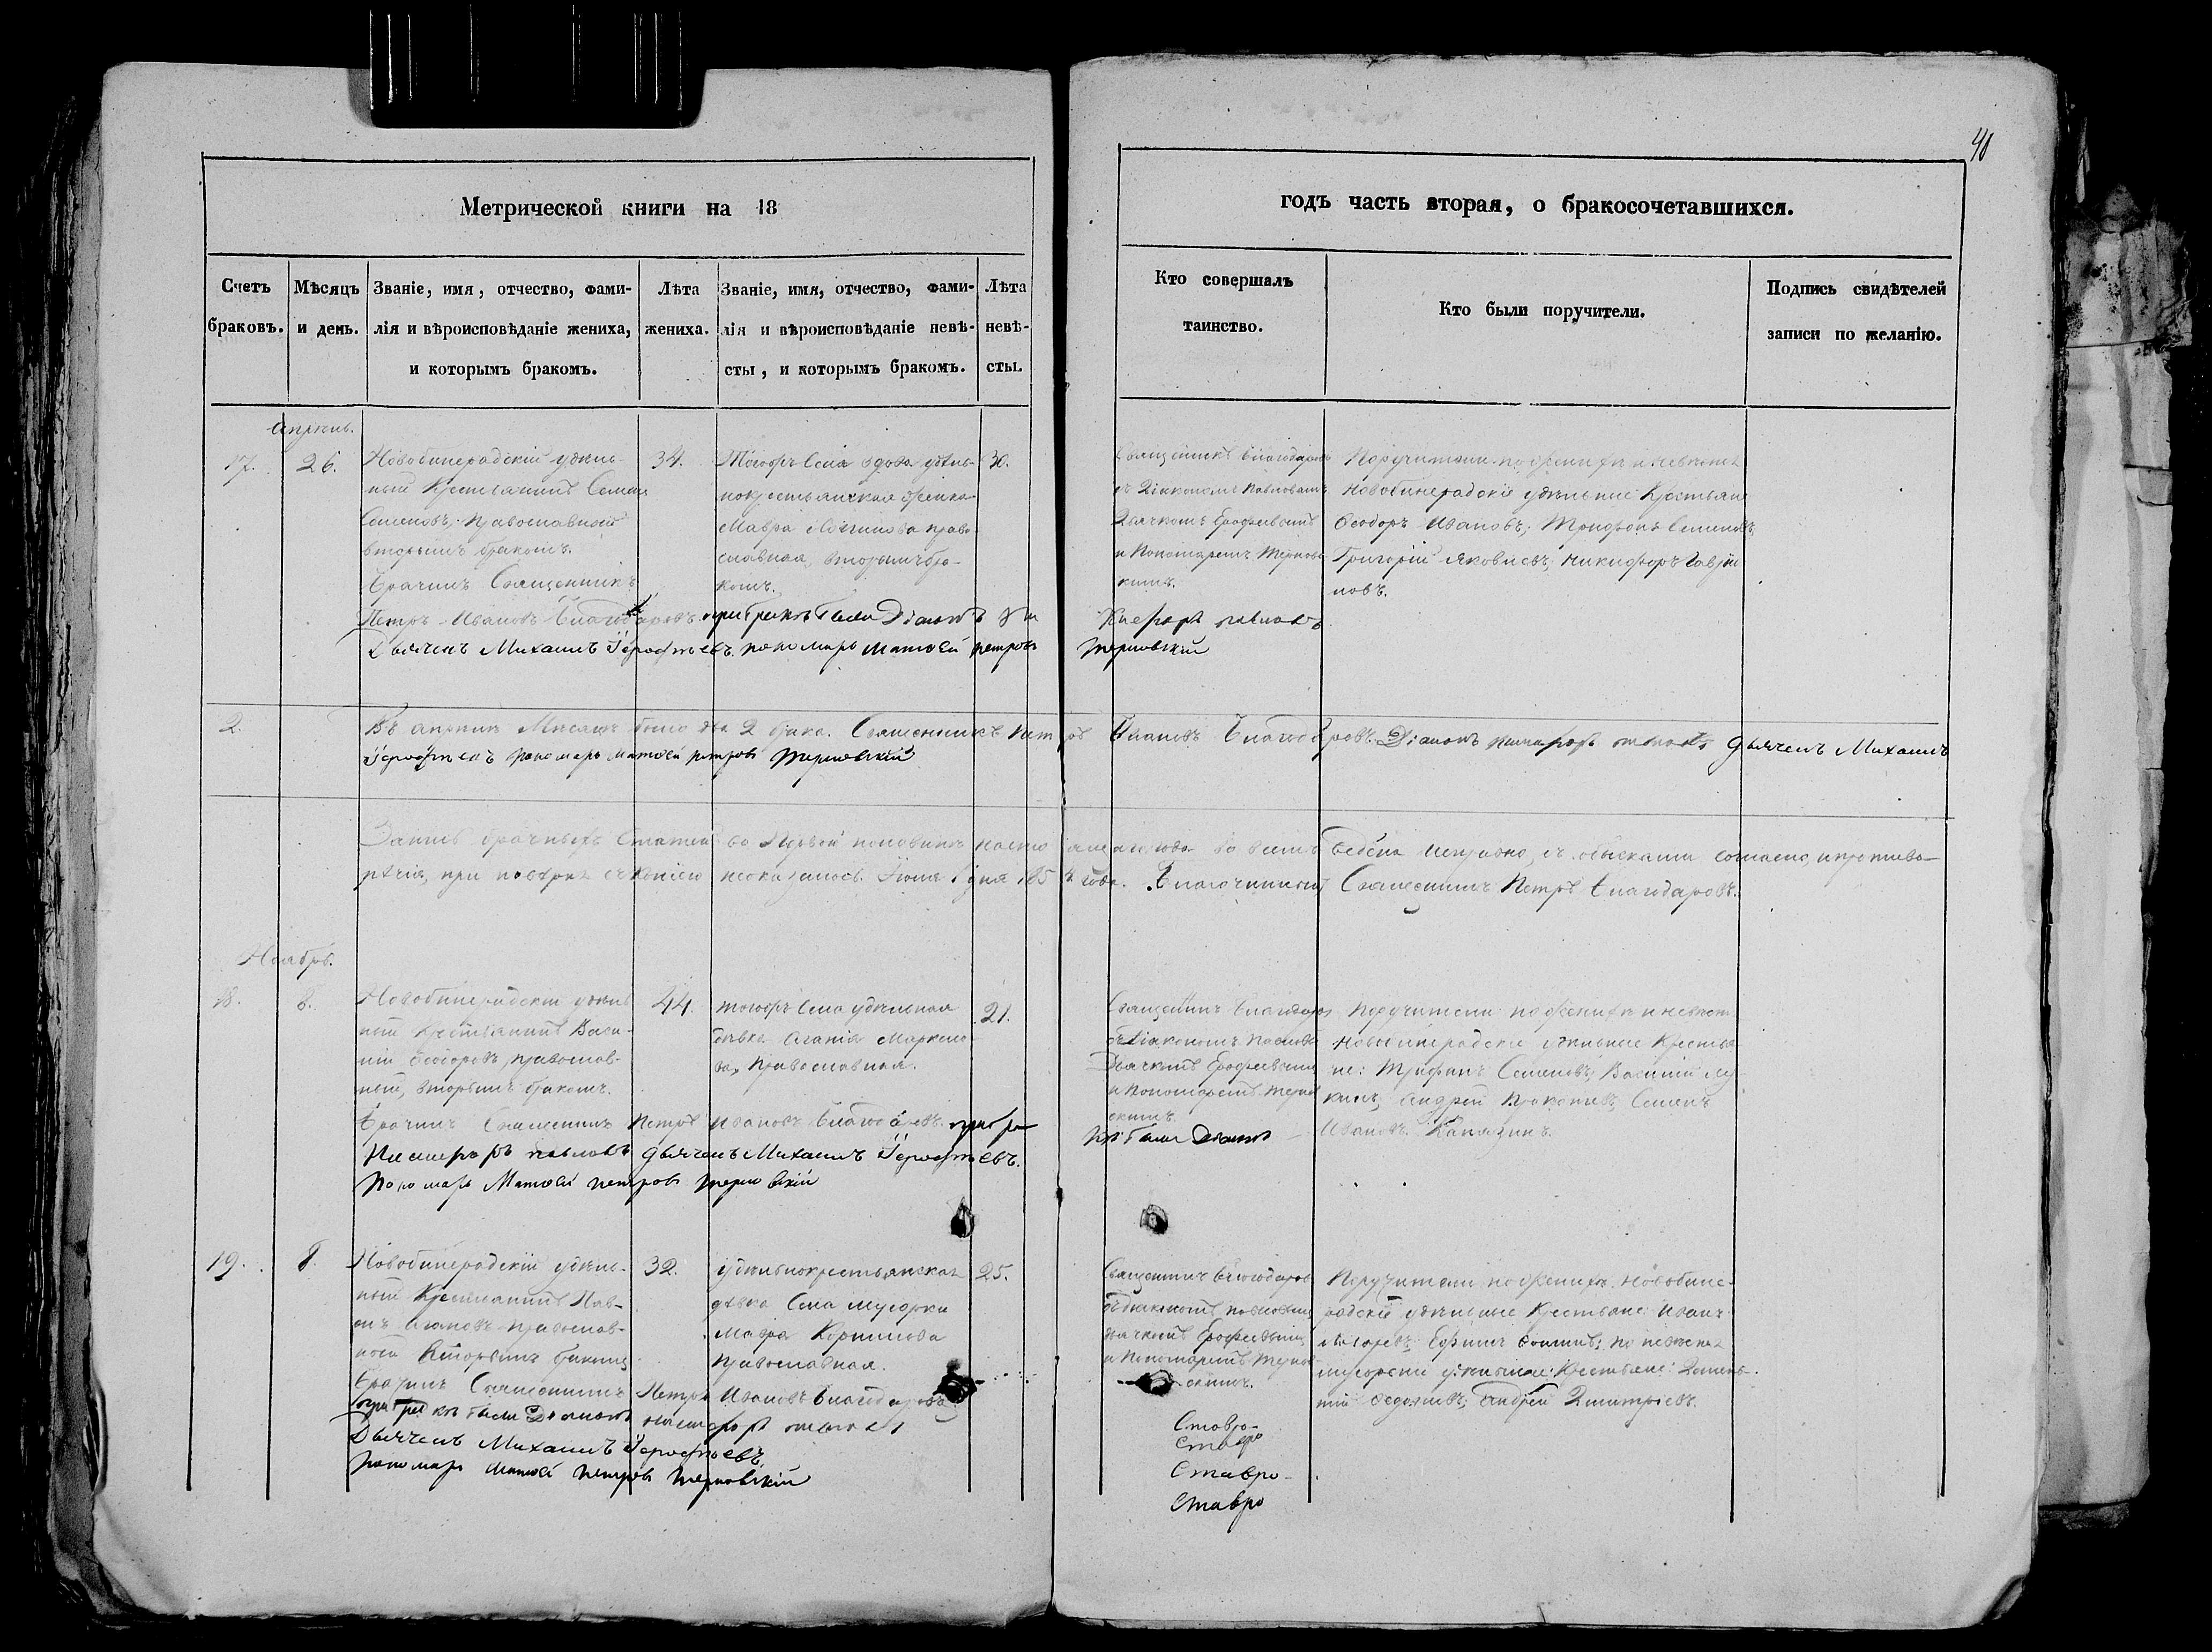 40
Метрической книги на 18
годъ часть вторая, о бракосочетавшихся.
Счетъ
браковъ.
Мѣсяцъ
и день.
Званіе, имя, отчество, фами-
лія и вѣроисповѣданіе жениха,
и которымъ бракомъ.
Лѣта
жениха.
Званіе, имя, отчество, фами-
лія и вѣроисповѣданіе невѣ-
сты, и которымъ бракомъ.
Лѣта
невѣ-
сты.
Кто совершалъ
таинство.
Кто были поручители.
Подпись свидѣтелей
записи по желанію.
Апрѣль.
17.
26.
Новобинерадскій удѣль-
ный Крестьянинъ Семенъ
Семеновъ, православной
вторымъ бракомъ.
Брачилъ Священникъ
Петръ Ивановъ Благодаровъ. при бракѣ были Діаконъ
Дьячекъ Михаилъ Ерофѣевъ. пономарь Матѳей петровъ
34.
Тогожъ села вдова удѣль-
нокрестьянская женка
Мавра Логинова право-
славная, вторымъ бра-
комъ.
30.
Священникъ Благодаровъ
съ Діакономъ Павловымъ
Дьячкомъ Ерофеевымъ
и Пономаремъ Тернов-
скимъ.
Никифоръ павловъ
терновскій
Поручители по женихѣ и невѣстѣ
Новобинерадскіе удѣльные Крестьяне
Ѳеодоръ Ивановъ; Трифонъ Семеновъ,
Григорій Яковлевъ, Никифоръ Гаври-
ловъ.
2.
Въ апрѣлѣ Мѣсяцѣ было 2 брака. Священникъ Петръ Ивановъ Благодаровъ. Діаконъ Никифоръ павловъ Дьячекъ Михаилъ
Ерофѣевъ пономарь матѳей петровъ терновскій
Запись брачныхъ Статей во Первой половинѣ настоящаго года во всемъ ведена исправно, съ обысками согласно, и противо-
рѣчія, при повѣркѣ не оказалось. Іюля дня 185 года. Благочинный Священникъ Петръ Благодаровъ.
Ноябрь.
18.
8.
Новобинерадскій удѣль
ный Крестьянинъ Васи-
лій Ѳеодоровъ, православ-
ный, вторымъ бракомъ.
Брачилъ Священникъ Петръ Ивановъ Благодаровъ. при бра
Никифоръ павловъ Дьячекъ Михаилъ Ерофѣевъ.
Пономарь Матѳей петровъ терновскій
44.
тогожъ села удѣльная
дѣвка Агапія Маркело-
ва, Православная.
21.
Священникъ Благодаров
съ Діакономъ Павловы
Дьячкомъ Ерофеевымъ
и Пономаремъ Терно
скимъ.
кѣ были Діаконъ
Поручители по женихѣ и невѣст
Новобинерадскіе удѣльные Крестья-
не: Трифонъ Семеновъ, Василій Лу
кинъ, Андрей Прокопьевъ, Семенъ
Ивановъ.
19.
8.
Новобинерадскій удѣль-
ный Крестьянинъ Пав-
елъ православ-
ной вторымъ бракомъ
Брачилъ Священникъ Петръ Ивановъ Благодаровъ
при бракѣ были Діаконъ никифоръ павловъ
Дьячекъ Михаилъ Ерофѣевъ.
пономарь матѳей петровъ терновскій
32.
удѣльнокрестьянская
дѣвка Села Мусорки
Мавра Корнилова
православная.
25.
Священникъ Благодаров
съ Діакономъ Павловы
дьячкомъ Ерофеевымъ
и Пономаремъ Тернов-
скимъ.
Поручители по женихѣ Новобине-
радскіе удѣльные Крестьяне: Иванъ
Ефимъ по невѣстѣ
мусорскіе удѣльные Крестьяне:
Андрей Дмитріевъ.
Ставро-
Ставро
Ставро-
Ставро